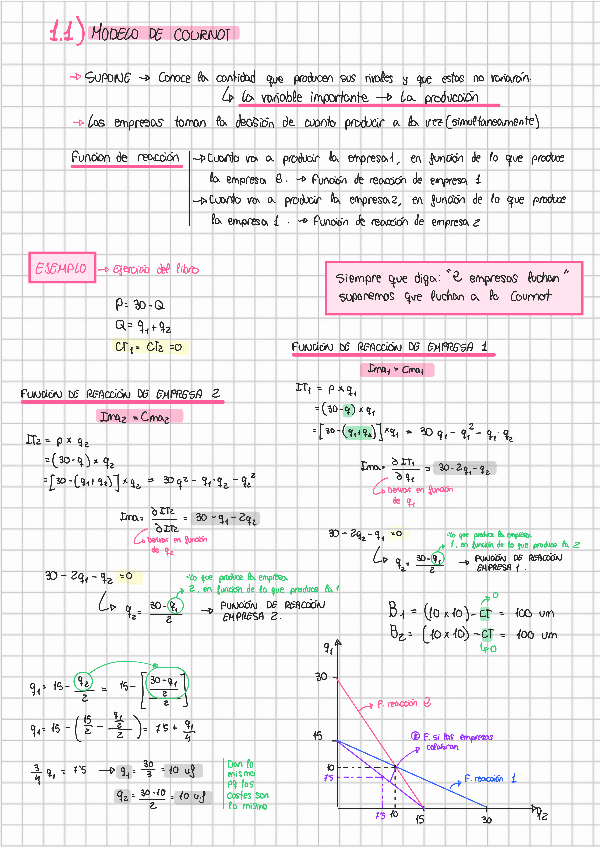 1.1) MODELO DE COURNOT
→ SUPONE → Conoce la cantidad que producen sus rivales y que estas no variarán
↳ La variable importante → La producción
→ Las empresas toman la decisión de cuanto producir a la vez (simultaneamente)
Función de reacción → Cuanto va a producir la empresa 1, en función de lo que produce
la empresa B. → Función de reacción de empresa 1
→ Cuanto va a producir la empresa 2, en función de lo que produce
la empresa 1. → Función de reacción de empresa 2
EJEMPLO → Ejercicio del libro
P = 30 - Q
Q = q1 + q2
CT1 = CT2 = 0
Siempre que diga: "2 empresas luchan"
suponemos que luchan a la Cournot
FUNCIÓN DE REACCIÓN DE EMPRESA 2
Ima2 = Cma2
IT2 = p x q2
= (30 - q) x q2
= [30 - (q1 + q2)] x q2 = 30q2 - q1·q2 - q2²
Ima = ∂IT2/∂IT2 = 30 - q1 - 2q2
↳ Derivar en función
de q2
30 - 2q1 - q2 = 0
↳ q2 = (30 - q1)/2 → FUNCIÓN DE REACCIÓN
EMPRESA 2.
·Lo que produce la empresa
2, en función de lo que produce la 1
FUNCIÓN DE REACCIÓN DE EMPRESA 1
Ima1 = Cma1
IT1 = p x q1
= (30 - q) x q1
= [30 - (q1 + q2)] x q1 = 30q1 - q1² - q1·q2
Ima = ∂IT1/∂q1 = 30 - 2q1 - q2
↳ Derivar en función
de q1
30 - 2q2 - q1 = 0
·Lo que produce la empresa
1, en función de lo que produce la 2
↳ q2 = (30 - q1)/2 → FUNCIÓN DE REACCIÓN
EMPRESA 1.
B1 = (10 x 10) - CT = 100 um
B2 = (10 x 10) - CT = 100 um
0
0
q1 = 15 - q2/2 = 15 - [((30 - q1)/2)/2]
q1 = 15 - (15/2 - (q1/2)/2) = 7'5 + q1/4
3/4 q1 = 7'5 → q1 = 30/3 = 10 uf
q2 = (30 - 10)/2 = 10 uf
Dan lo
mismo
pq los
costes son
lo mismo
q1
30
15
10
7'5
F. reacción 2
F. si las empresas
colaboran
F. reacción 1
7'5 10 15 30 q2